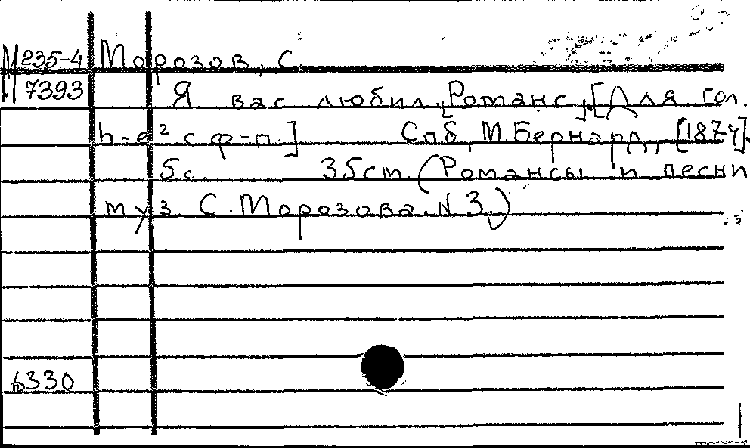 М 235-4 Морозов, С.
7393 Я вас любил. Романс. [Для гол.
h-e² с ф-п.] Спб, М. Бернард, [1874].
5с. 35ст. (Романсы и песни
муз. С. Морозова. N 3.)
6330